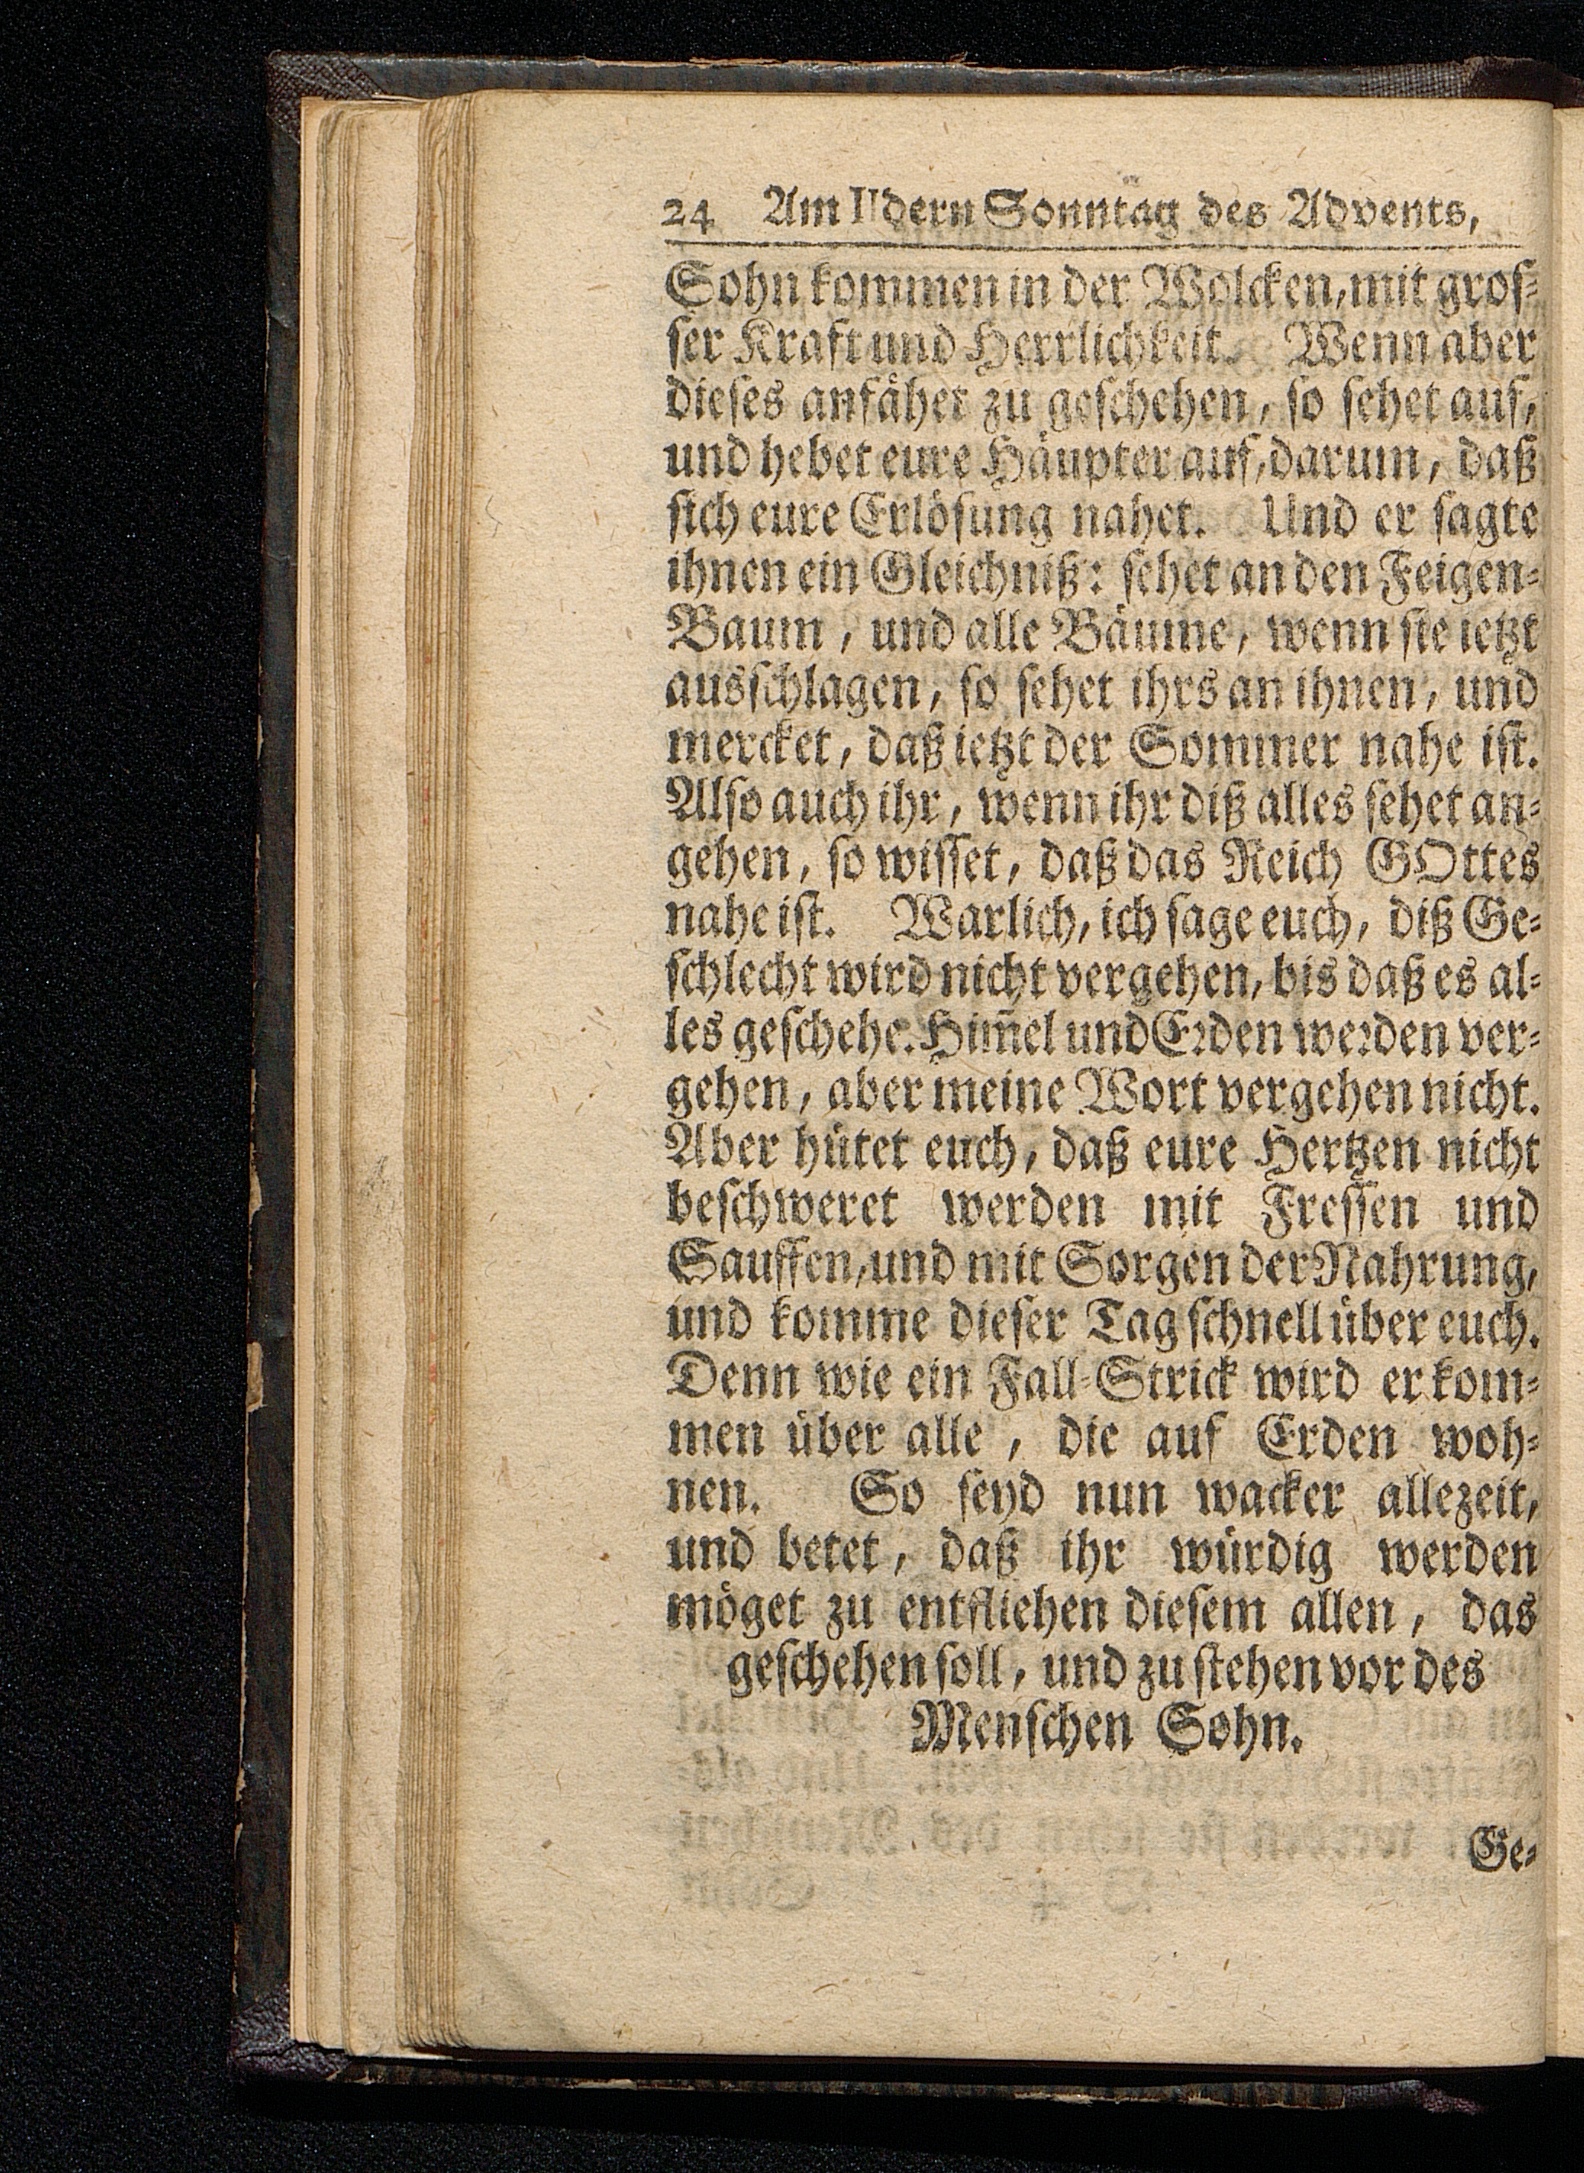 24 Am IIdern Sonntag des Advents,
Sohn kommen in der Wolcken, mit gros-
ser Kraft und Herrlichkeit. Wenn aber
dieses anfähet zu geschehen, so sehet auf,
und hebet eure Häupter auf, darum, daß
sich eure Erlösung nahet. Und er sagte
ihnen ein Gleichniß: sehet an den Feigen-
Baum, und alle Bäume, wenn sie ietzt
ausschlagen, so sehet ihrs an ihnen, und
mercket, daß ietzt der Sommer nahe ist.
Also auch ihr, wenn ihr diß alles sehet an-
gehen, so wisset, daß das Reich GOttes
nahe ist. Warlich, ich sage euch, diß Ge-
schlecht wird nicht vergehen, bis daß es al-
les geschehe. Him̄el und Erden werden ver-
gehen, aber meine Wort vergehen nicht.
Aber hütet euch, daß eure Hertzen nicht
beschweret werden mit Fressen und
Sauffen, und mit Sorgen der Nahrung,
und komme dieser Tag schnell über euch.
Denn wie ein Fall-Strick wird er kom-
men über alle, die auf Erden woh-
nen. So seyd nun wacker allezeit,
und betet, daß ihr würdig werden
möget zu entfliehen diesem allen, das
geschehen soll, und zu stehen vor des
Menschen Sohn.
Ge-